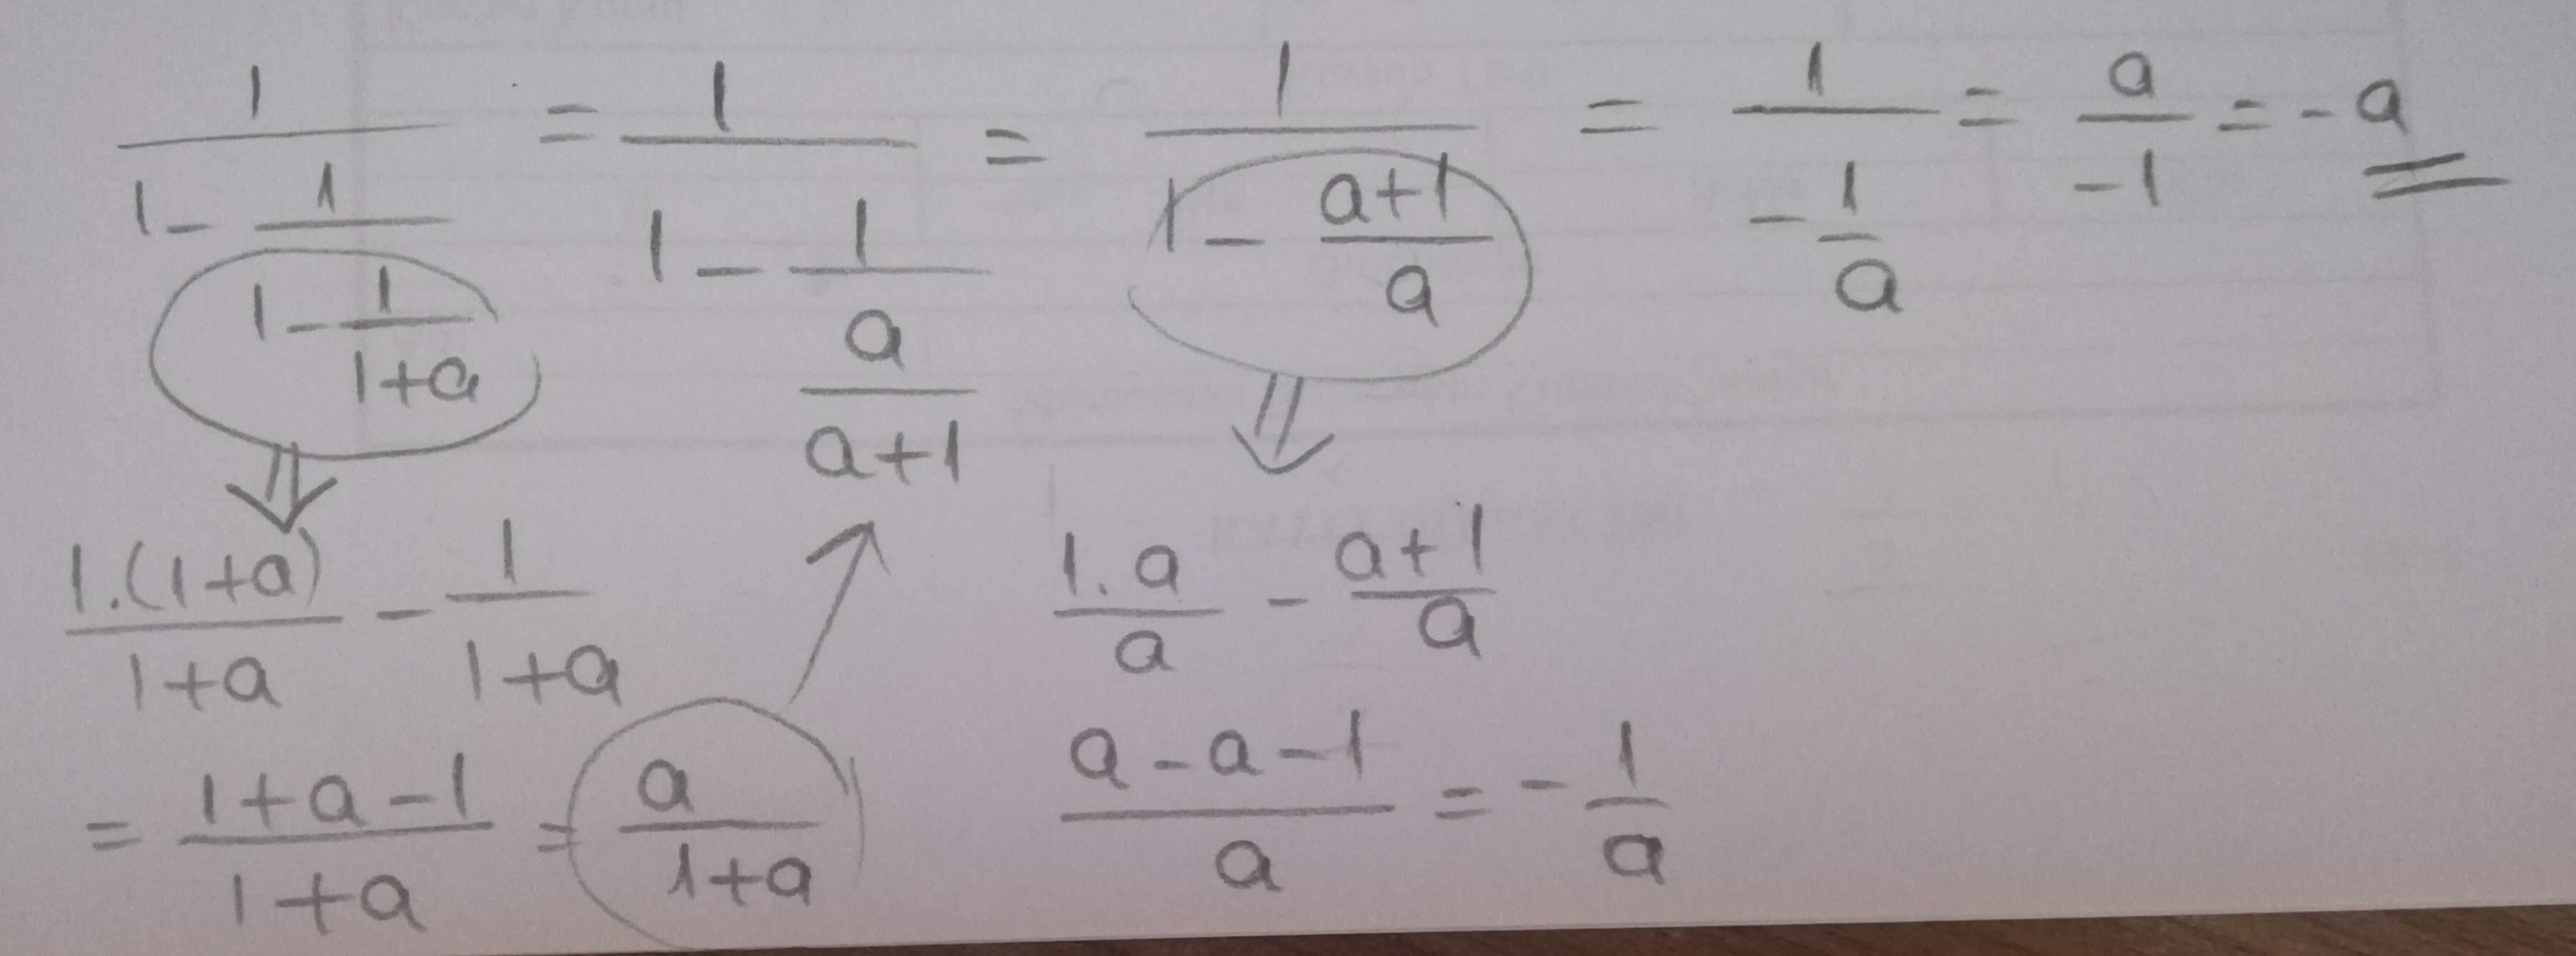 1/(1-1/(1-1/(1+a))) = 1/(1-1/(a/(a+1))) = 1/(1-(a+1)/a) = 1/(-1/a) = a/-1 = -a
1.(1+a)/(1+a) - 1/(1+a)
= (1+a-1)/(1+a) = a/(1+a)
1.a/a - (a+1)/a
(a-a-1)/a = -1/a